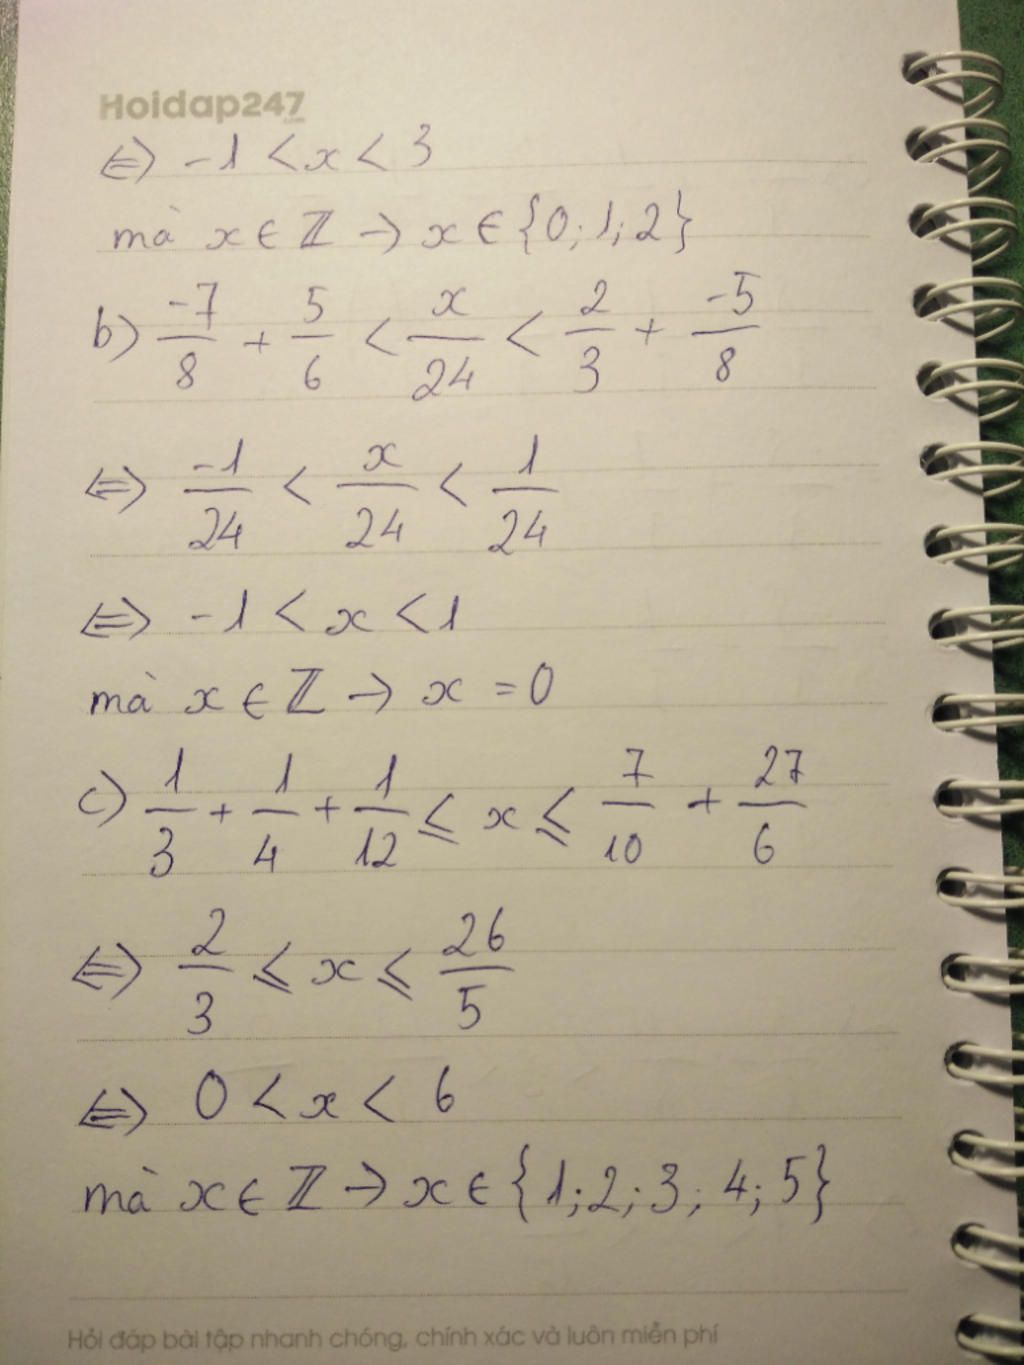 Hoidap247
.com
⇔ -1 < x < 3
mà x ∈ ℤ → x ∈ {0; 1; 2}
b) -7/8 + 5/6 < x/24 < 2/3 + -5/8
⇔ -1/24 < x/24 < 1/24
⇔ -1 < x < 1
mà x ∈ ℤ → x = 0
c) 1/3 + 1/4 + 1/12 ≤ x ≤ 7/10 + 27/6
⇔ 2/3 ≤ x ≤ 26/5
⇔ 0 < x < 6
mà x ∈ ℤ → x ∈ {1; 2; 3; 4; 5}
Hỏi đáp bài tập nhanh chóng, chính xác và luôn miễn phí